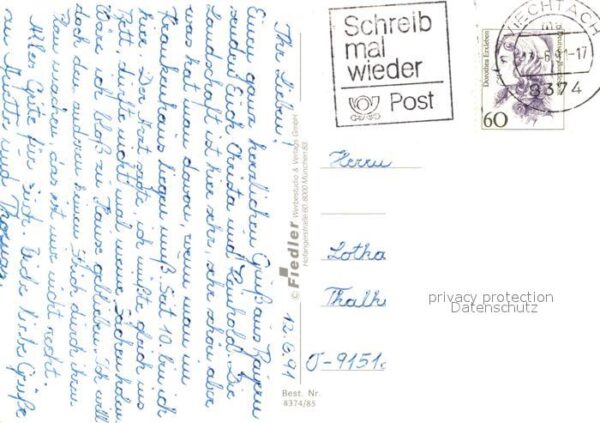 Ihr Lieben!
Einen ganz herzlichen Gruß aus Bayern
senden Euch Christa und Leonhold. Die
Landschaft ist hier sehr, sehr schön aber
was hat man davon, wenn man im
Krankenhaus liegen muß. Seit 10. bin ich
hier. Der Arzt sagte, ich müßte gleich ins
Bett, durfte nicht mal meine Sachen holen.
Wäre ich bloß zu Hause geblieben. Ich will
doch den anderen keinen Strich durch ihren
machen, das ist mir nicht recht.
Alles Gute für Euch. Viele liebe Grüße
an Mutter und Thomas
12.6.91
© Fiedler Werbestudio & Verlags GmbH
8000 München 83
Best. Nr.
8374/85
Schreib
mal
wieder
Post
VIECHTACH
-17
8374
Dorothea Erxleben
60
Herrn
Lotha
Thalh
O-9151
privacy protection
Datenschutz